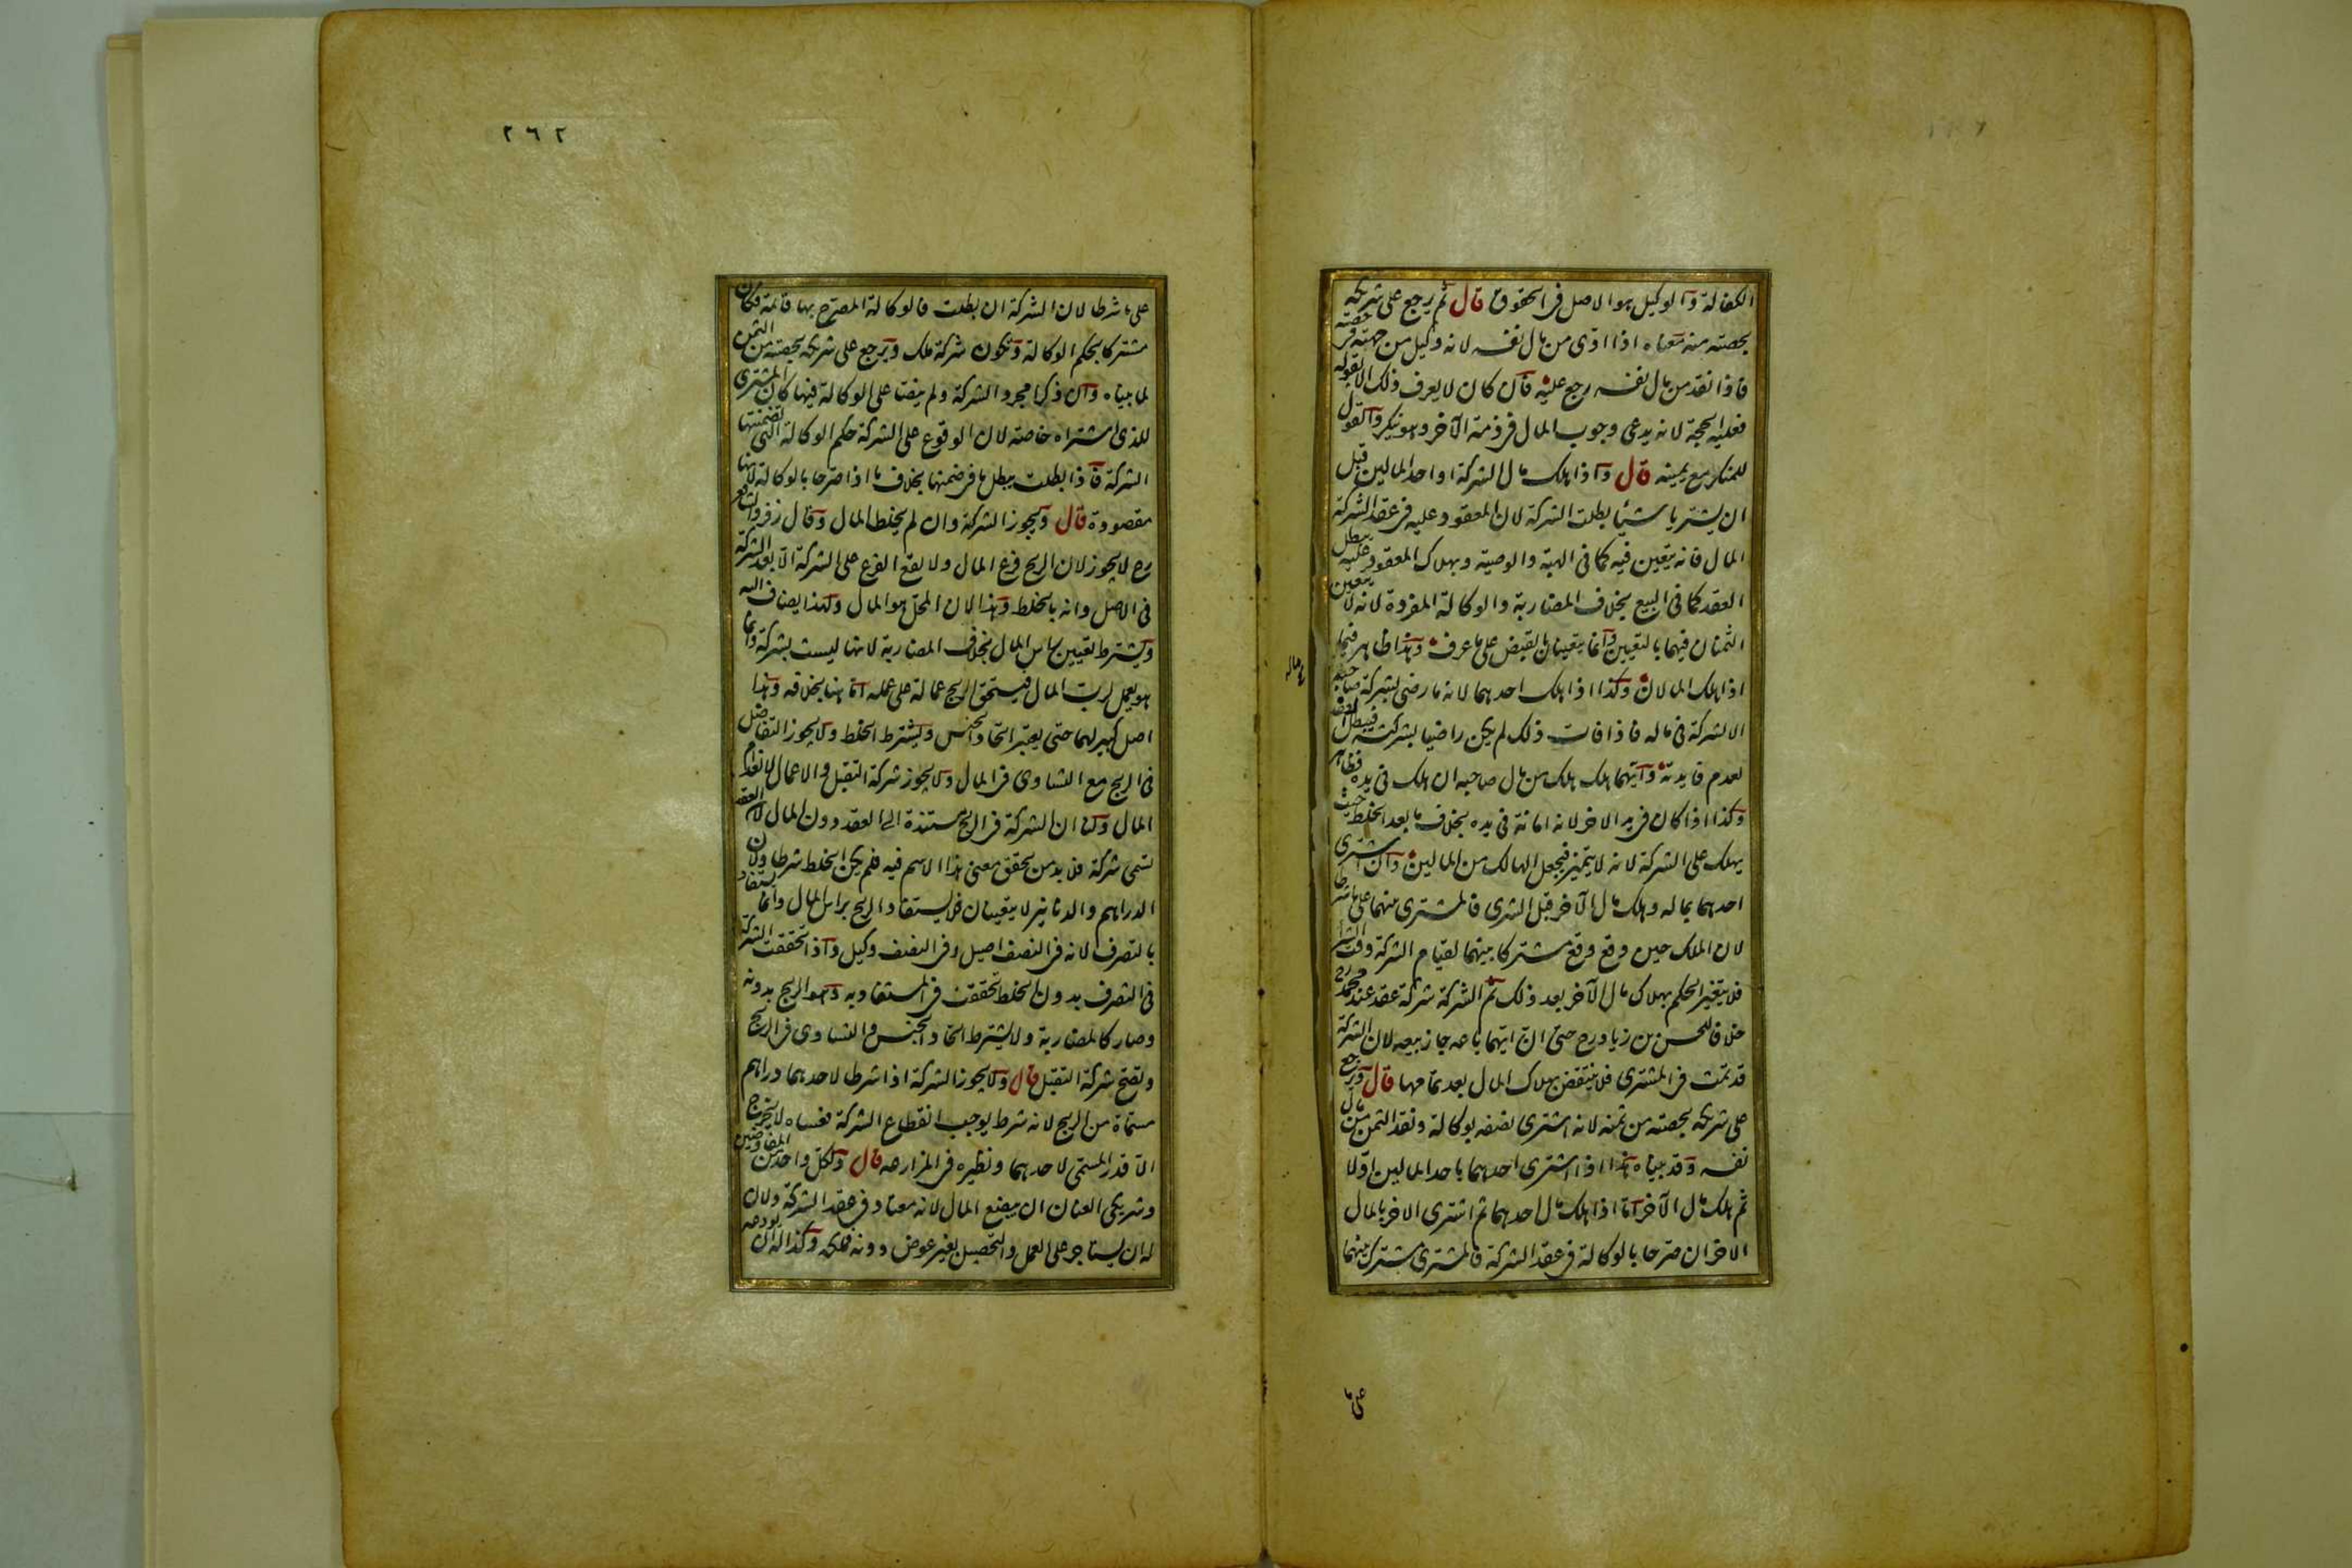 الكفالة والوكيل هو الاصل فى الحقوق قال ثم رجع على شريكه
بحصته منه معناه اذا ادى من مال نفسه لانه وكيل من جهته فى حصته
فاذا نقد من مال نفسه رجع عليه فان كان لا يعرف ذلك الا بقوله
فعليه الحجة لانه يدعى وجوب المال فى ذمة الآخر وهو ينكر والقول
للمنكر مع يمينه قال واذا هلك مال الشركة او احد المالين قبل
ان يشتريا شيئا بطلت الشركة لان المعقود عليه فى عقد الشركة
المال فانه يتعين فيه كما فى الهبة والوصية وبهلاك المعقود عليه يبطل
العقد كما فى البيع بخلاف المضاربة والوكالة المفردة لانه لا يتعين
الثمنان فيهما بالتعيين وانما يتعينان بالقبض على ما عرف وهذا ظاهر فيما
اذا هلك المالان وكذا اذا هلك احدهما لانه ما رضى بشركة صاحبه
الا لشركة فى ماله فاذا فات ذلك لم يكن راضيا بشركته فيبطل العقد
لعدم فايدته وايهما هلك هلك من مال صاحبه ان هلك فى يده فظاهر
وكذا اذا كان فى يد الاخر لانه امانة فى يده بخلاف ما بعد الخلط حيث
يهلك على الشركة لانه لا يتميز فيجعل الهالك من المالين وان اشترى
احدهما بماله وهلك مال الآخر قبل الشرى فالمشترى بينهما على ما شرطا
لان الملك حين وقع وقع مشتركا بينهما لقيام الشركة وقت الشرا
فلا يتغير الحكم بهلاك مال الآخر بعد ذلك ثم الشركة شركة عقد عند محمد رح
خلافا للحسن بن زياد رح حتى ان ايهما باعه جاز بيعه لان الشركة
قد تمت فى المشترى فلا ينتقض بهلاك المال بعد تمامها قال ويرجع
على شريكه بحصته من ثمنه لانه اشترى نصفه بوكالة ونقد الثمن من مال
نفسه وقد بيناه هذا اذا اشترى احدهما باحد المالين اولا
ثم هلك مال الآخر اما اذا هلك مال احدهما ثم اشترى الاخر بالمال
الاخر ان صرحا بالوكالة فى عقد الشركة فالمشترى مشترك بينهما
على ما
٢٦٢
على ما شرطا لان الشركة ان بطلت فالوكالة المصرح بها قائمة فكان
مشتركا بحكم الوكالة وتكون شركة ملك ويرجع على شريكه بحصته من الثمن
لما بيناه وان ذكرا مجرد الشركة ولم ينصا على الوكالة فيها كان المشترى
للذى اشتراه خاصة لان الوقوع على الشركة حكم الوكالة التى تضمنتها
الشركة فاذا بطلت يبطل ما فى ضمنها بخلاف ما اذا صرحا بالوكالة لانها
مقصودة قال ويجوز الشركة وان لم يخلط المال وقال زفر والشافعى
رح لا يجوز لان الربح فرع المال ولا يقع الفرع على الشركة الا بعد الشركة
فى الاصل وانه بالخلط وهذا لان المحل هو المال ولهذا يضاف اليه
ويشترط تعيين راس المال بخلاف المضاربة لانها ليست بشركة وانما
هو يعمل لرب المال فيستحق الربح عمالة على عمله اما هنا بخلافه وهذا
اصل كبير لهما حتى يعتبر اتحاد الجنس ويشترط الخلط ولا يجوز التفاضل
فى الربح مع التساوى فى المال ولا يجوز شركة التقبل والاعمال لانعدام
المال ولنا ان الشركة فى الربح مستندة الى العقد دون المال لان العقد
تسمى شركة فلا بد من تحقق معنى هذا الاسم فيه فلم يكن الخلط شرطا ولان
الدراهم والدنانير لا يتعينان فلا يستفاد الربح براس المال وانما يستفاد
بالتصرف لانه فى النصف اصيل وفى النصف وكيل واذا تحققت الشركة
فى التصرف بدون الخلط تحققت فى المستفاد به وهو الربح بدونه
وصار كالمضاربة ولا يشترط اتحاد الجنس والتساوى فى الربح
وتصح شركة التقبل قال ولا يجوز الشركة اذا شرطا لاحدهما دراهم
مسماة من الربح لانه شرط يوجب انقطاع الشركة فعساه لا يخرج
الا قدر المسمى لاحدهما ونظيره فى المزارعة قال ولكل واحد من المفاوضين
وشريكى العنان ان يبضع المال لانه معتاد فى عقد الشركة ولان
له ان يستاجر على العمل والتحصيل بغير عوض دونه فيملكه وكذا له ان يودعه